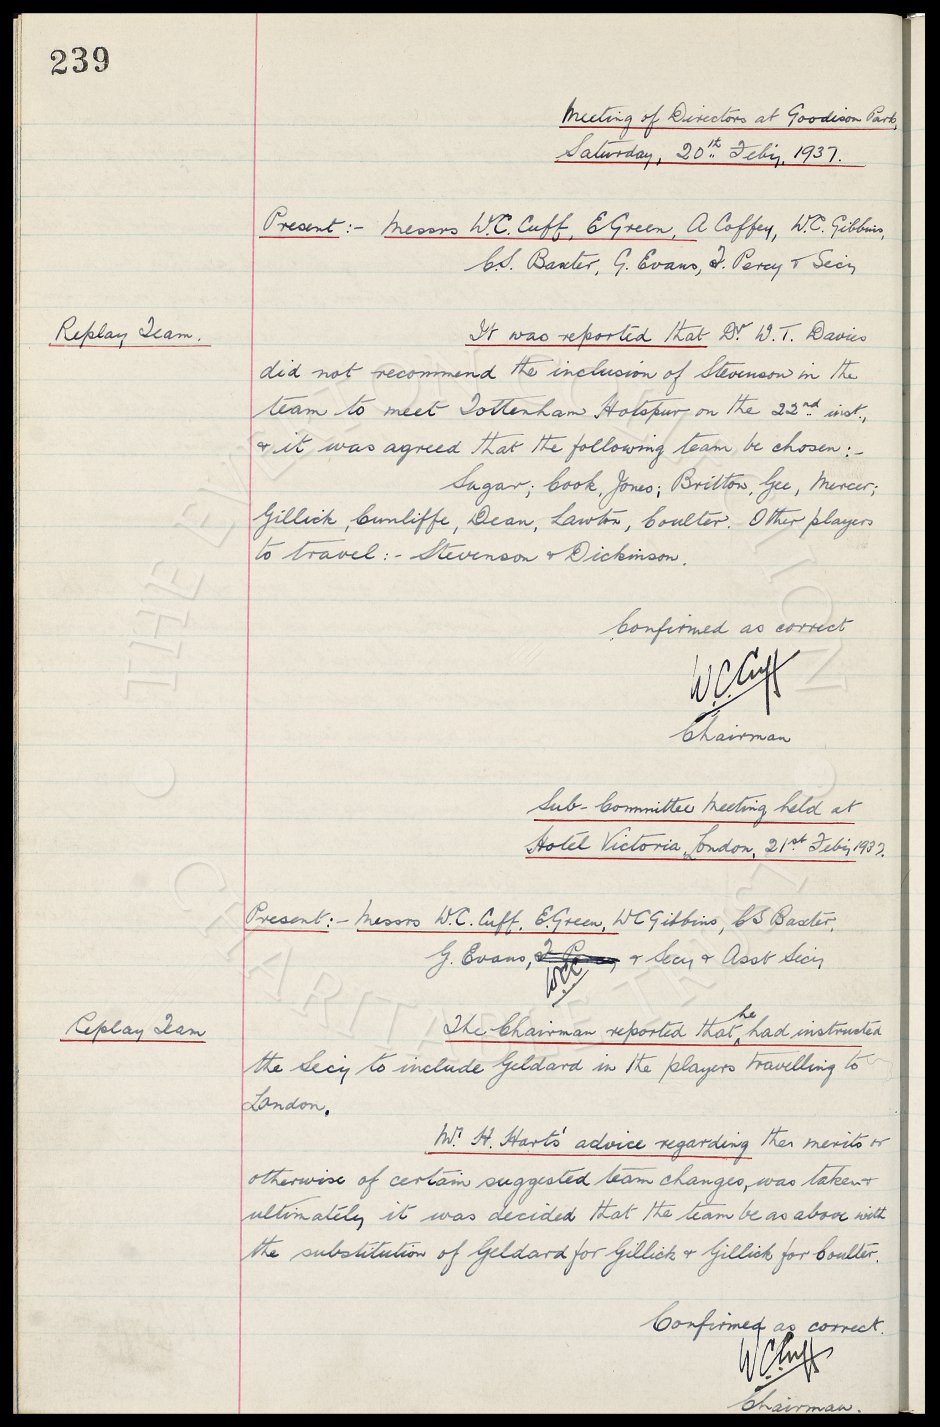 239
Meeting of Directors at Goodison Park,
Saturday, 20th Feb'y, 1937.
Present:- Messrs W.C. Cuff, E Green, A Coffey, W.C. Gibbins,
C.S. Baxter, G. Evans, F. Percy & Secy
Replay Team.
It was reported that Dr W.T. Davies
did not recommend the inclusion of Stevenson in the
team to meet Tottenham Hotspur on the 22nd inst.,
& it was agreed that the following team be chosen:-
Sagar; Cook, Jones; Britton, Gee, Mercer;
Gillick, Cunliffe, Dean, Lawton, Coulter. Other players
to travel:- Stevenson & Dickinson.
Confirmed as correct
W.C. Cuff
Chairman
Sub-Committee Meeting held at
Hotel Victoria, London, 21st Feb'y 1937.
Present:- Messrs W.C. Cuff, E. Green, W C Gibbins, C S Baxter,
G. Evans, F. Percy & Secy & Asst Secy
WCC
Replay Team
The Chairman reported that he had instructed
the Secy to include Geldard in the players travelling to
London.
Mr. H. Harts' advice regarding the merits or
otherwise of certain suggested team changes, was taken &
ultimately it was decided that the team be as above with
the substitution of Geldard for Gillick & Gillick for Coulter.
Confirmed as correct.
W.C. Cuff
Chairman.
© THE EVERTON COLLECTION
CHARITABLE TRUST